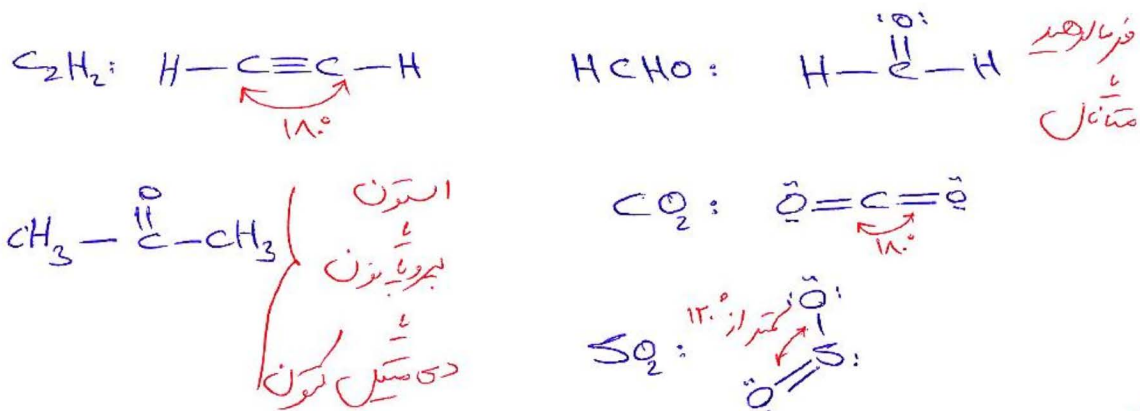 C₂H₂: H—C≡C—H
۱۸۰°
HCHO: H—C—H
‖
:O:
فرمالدهید
یا
متانال
CH₃—C—CH₃
‖
O
استون
یا
پروپانون
یا
دی متیل کتون
CO₂: O=C=O
۱۸۰°
SO₂:
کمتر از ۱۲۰°
:O:
S:
O